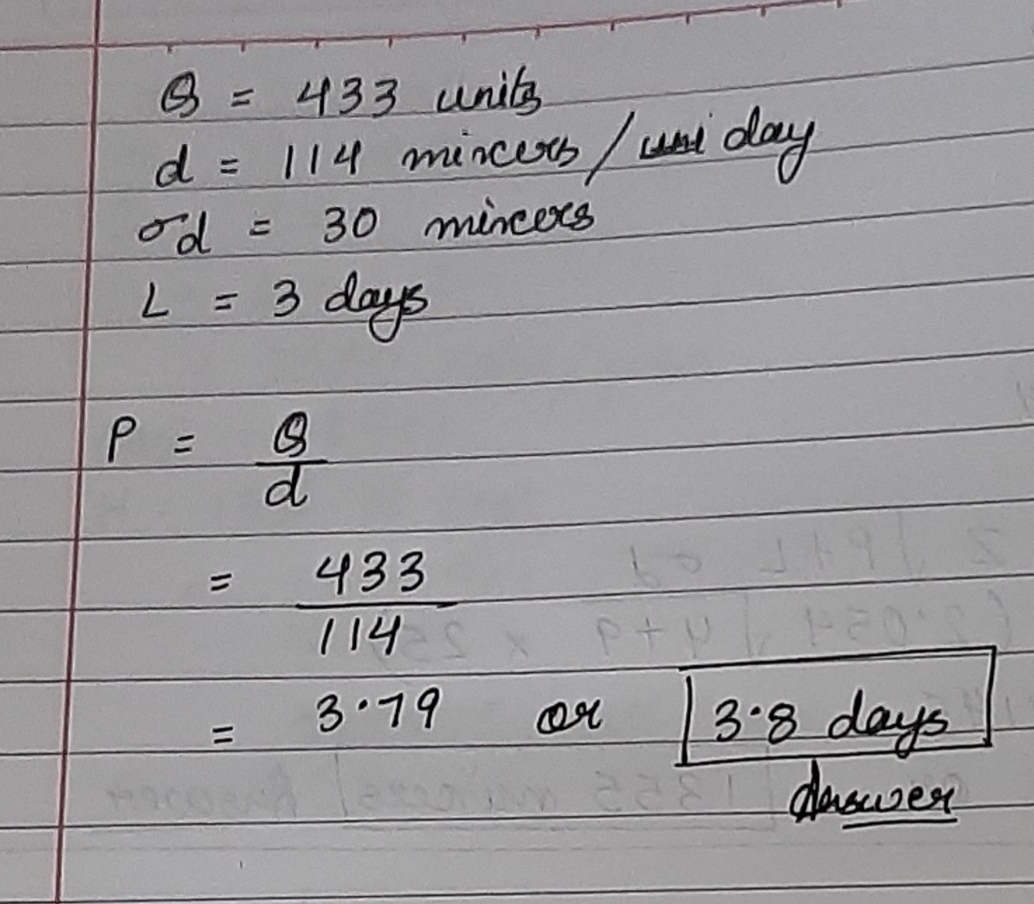 Q = 433 units
d = 114 mincers / day
σd = 30 mincers
L = 3 days
P = Q
d
= 433
114
= 3.79 or 3.8 days
Answer